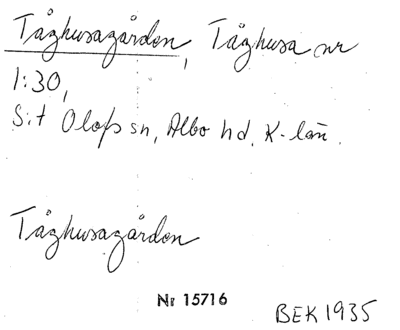 Tåghusagården, Tåghusa nr
1:30,
S:t Olofs sn, Albo hd, K-län.
Tåghusagården
Nr 15716
BEK 1935